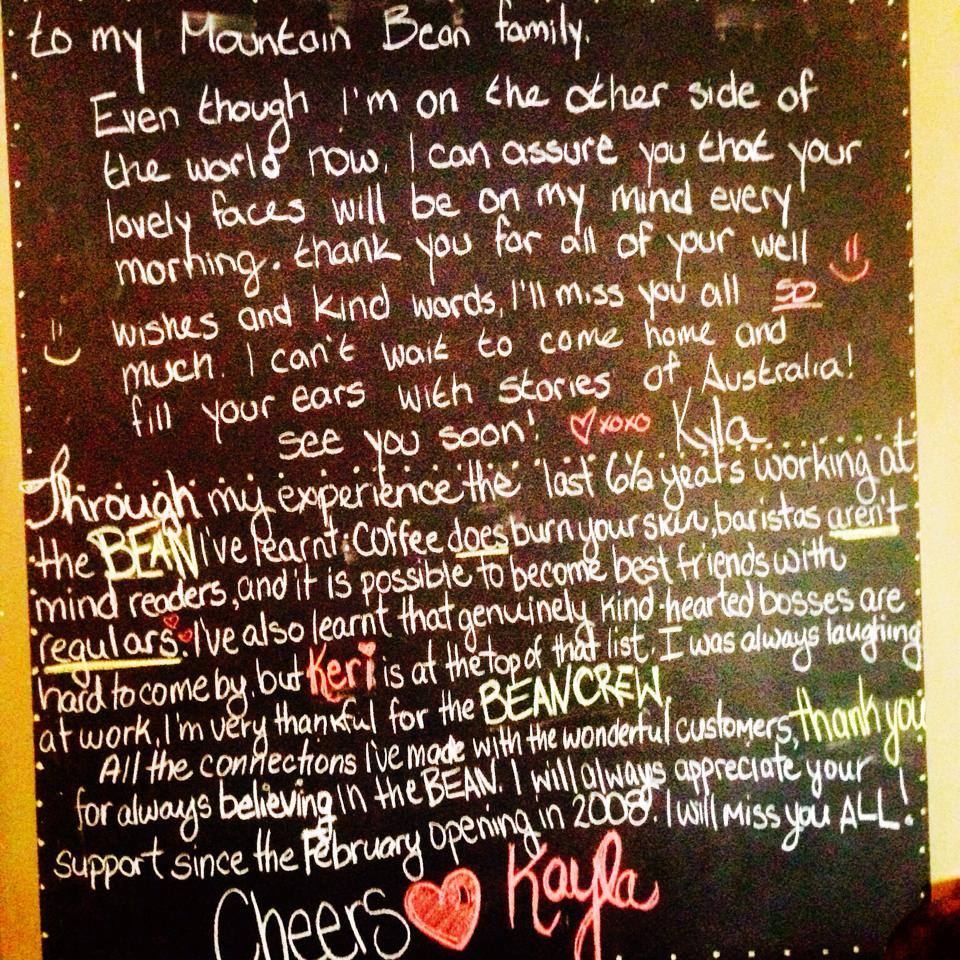 to my Mountain Bean family.
Even though I'm on the other side of
the world now, I can assure you that your
lovely faces will be on my mind every
morning. thank you for all of your well
wishes and kind words, I'll miss you all so
much. I can't wait to come home and
fill your ears with stories of Australia!
see you soon! xoxo Kyla
Through my experience the last 6½ years working at
the BEAN I've learnt: Coffee does burn your skin, baristas aren't
mind readers, and it is possible to become best friends with
regulars. I've also learnt that genuinely kind-hearted bosses are
hard to come by, but Keri is at the top of that list. I was always laughing
at work, I'm very thankful for the BEAN CREW.
All the connections I've made with the wonderful customers, thank you
for always believing in the BEAN. I will always appreciate your
support since the February opening in 2008. I will miss you ALL!
Cheers Kayla